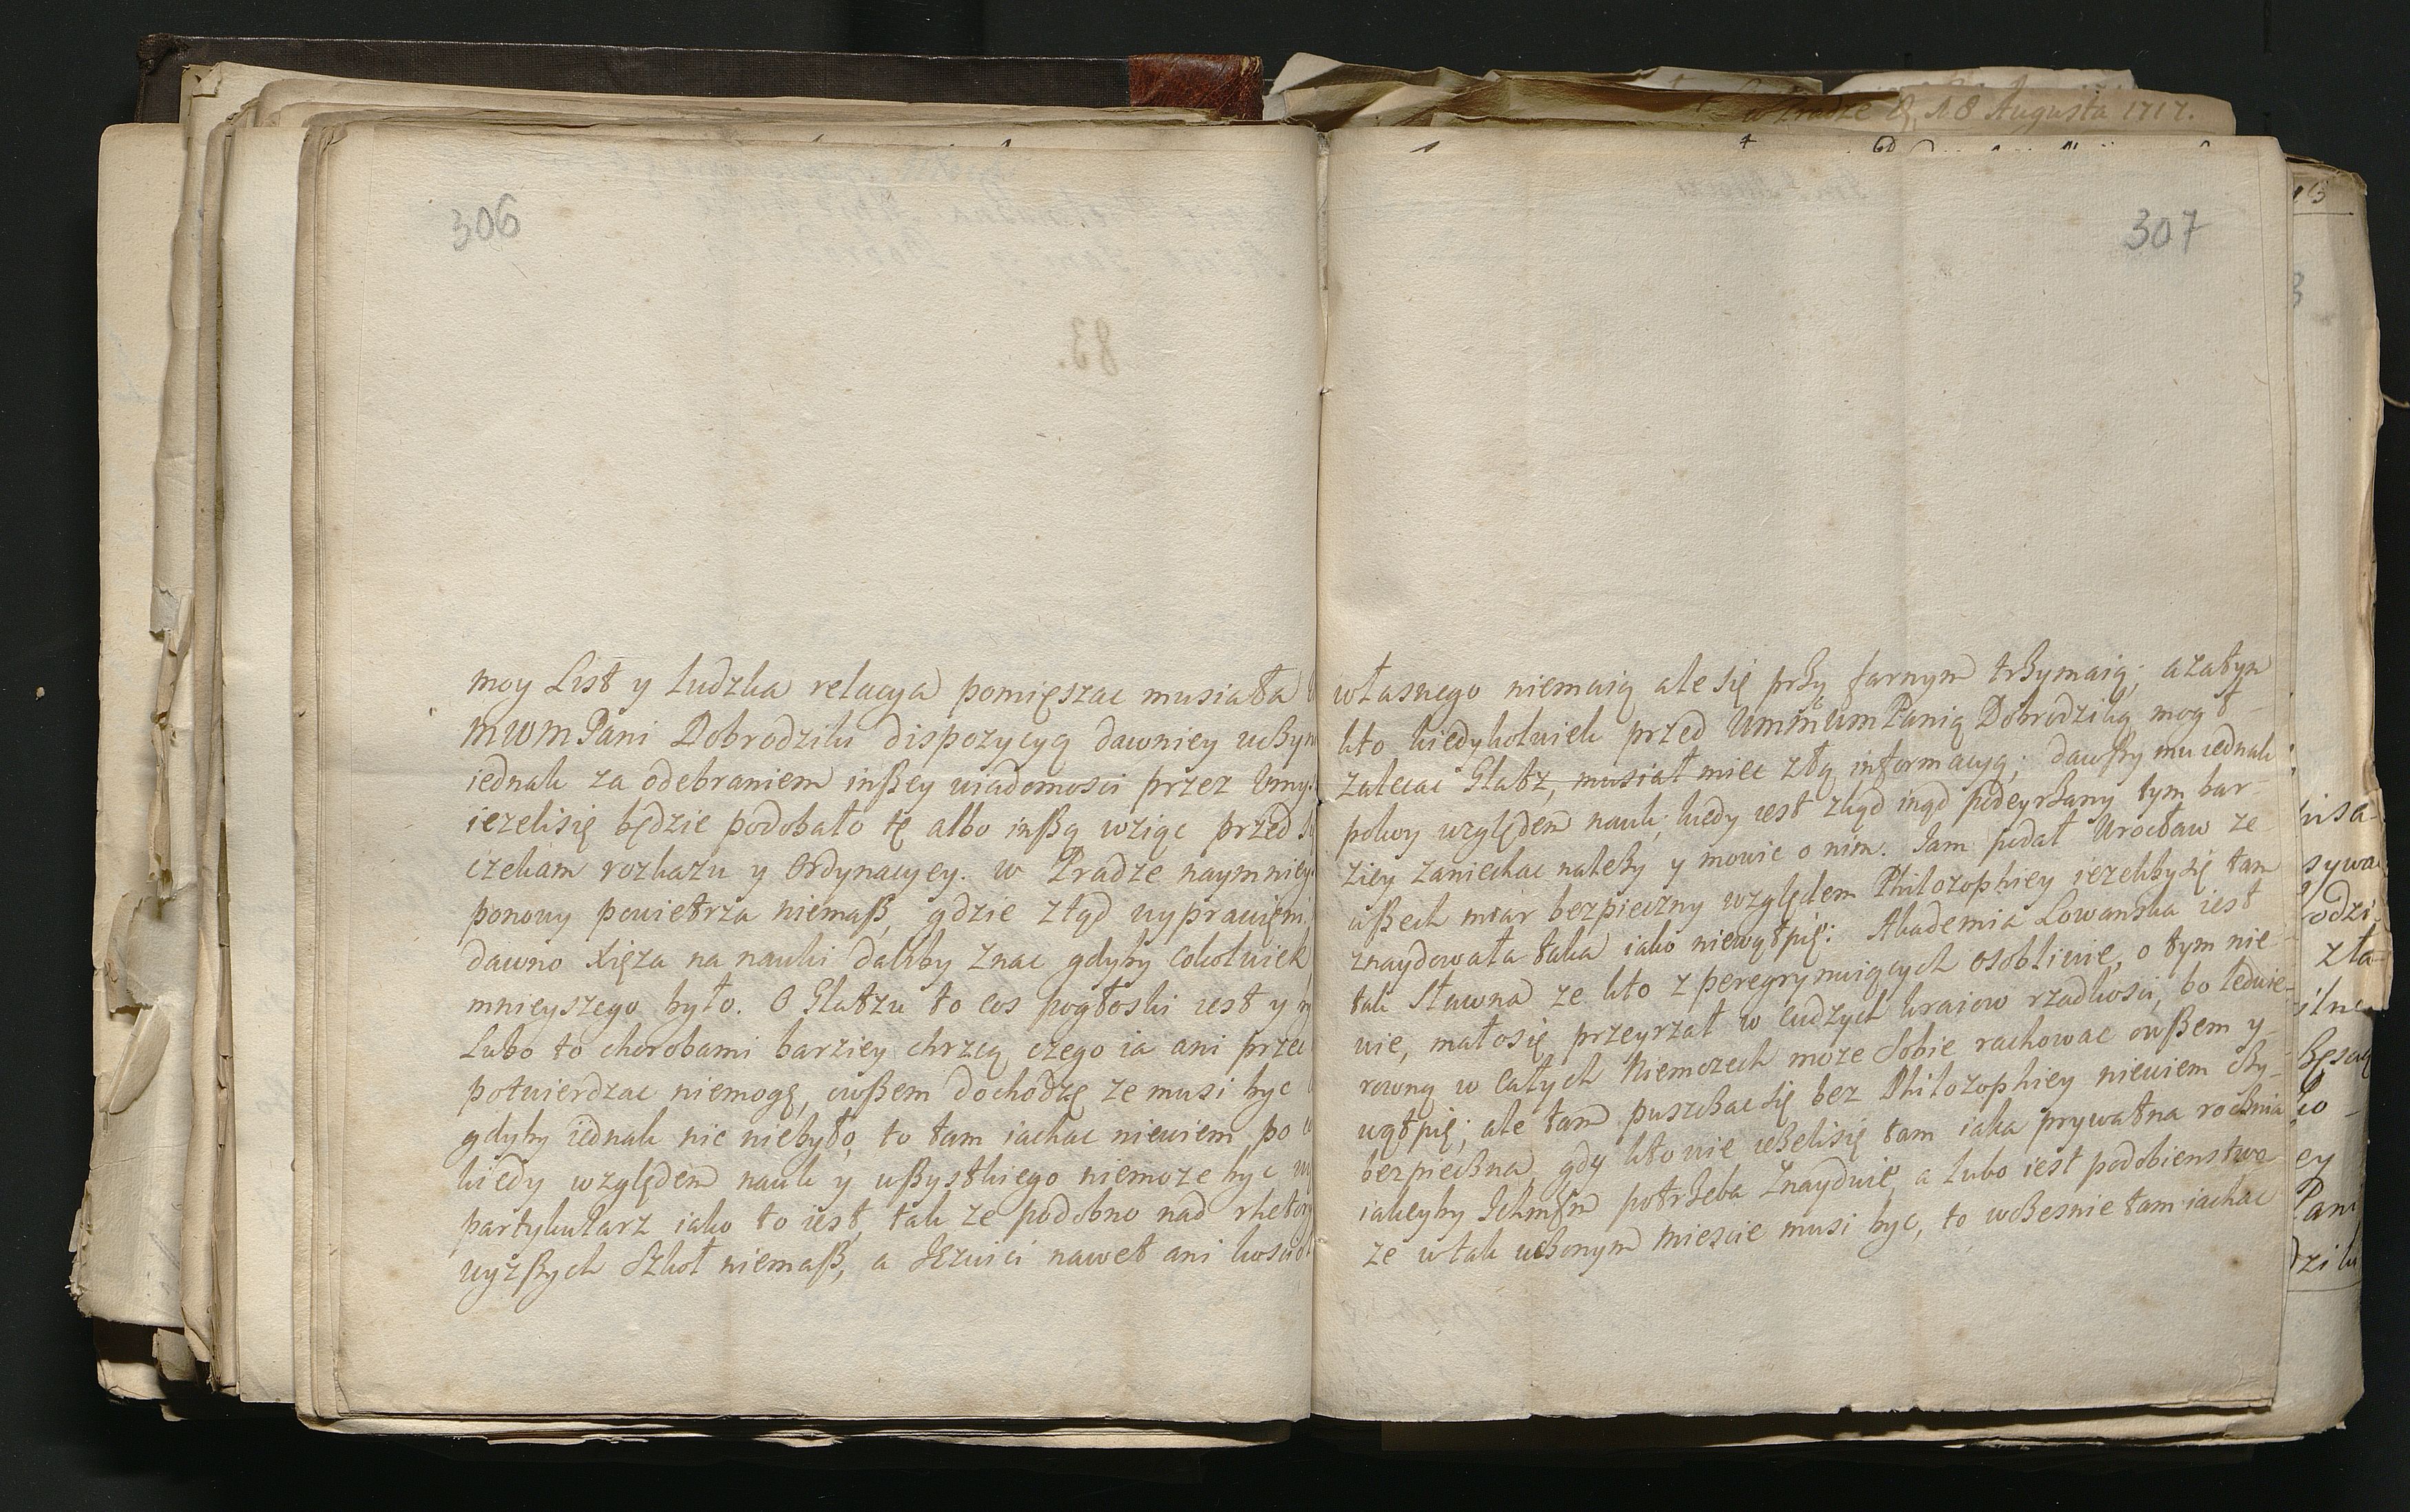 306
moy List y ludzka relacya pomięszac musiała
MWMPani Dobrodziki dispozycyą dawniey uczyn
iednak za odebraniem inßey wiadomosci przez Umys
iezelisię będzie podobało tę albo inßą wziąc przed
czekam rozkazu y Ordynacyey. w Pradze naymniey
ponowy powietrza niemaß, gdzie ztąd wyprawieni
dawno Xięza na nauki daliby znac gdyby cokolwiek
mnieyszego było. O Glatzu to cos pogłoski iest y
Lubo to chorobami barziey chrzcą czego ia ani przec
potwierdzac niemogę, owßem dochodzę ze musi byc
gdyby iednak nic niebyło, to tam iachac niewiem po
kiedy względem nauk y wßystkiego niemoze byc
partykularz iako to iest, tak ze podobno nad rhetory
wyzßych Szkoł niemaß, a Jezuici nawet ani koscioł
w Pradze d. 18 Augusta 1717.
307
własnego niemaią ale się przy farnym trzymaią; a zatym
kto kiedykolwiek przed UmmUmPanią Dobrodziką mogł
zalecac Glatz, musiał miec złą informacyą; dawszy mu iednak
pokoy względem nauk, kiedy iest zkąd inąd podeyrzany tym bar-
ziey zaniechac nalezy y mowic o nim. Jam podał Wrocław ze
wßech miar bezpieczny względem Philozophiey iezeliby się tam
znaydowała taka iako niewątpię: Akademia Lowanska iest
tak sławna ze kto z peregrynuiących osobliwie, o tym nie
wie, mało się przeyrzał w cudzych kraiow rzadkosci, bo ledwie
rowną w całych Niemczech moze sobie rachowac owßem y
wątpię; ale tam puszczac się bez Philozophiey niewiem czy-
bezpieczna gdy kto wie iezelisię tam iaka prywatna roczna
iakieyby Ichmsm potrzeba znayduie, a lubo iest podobienstwo
ze w tak uczonym miescie musi byc, to wczesnie tam iachac